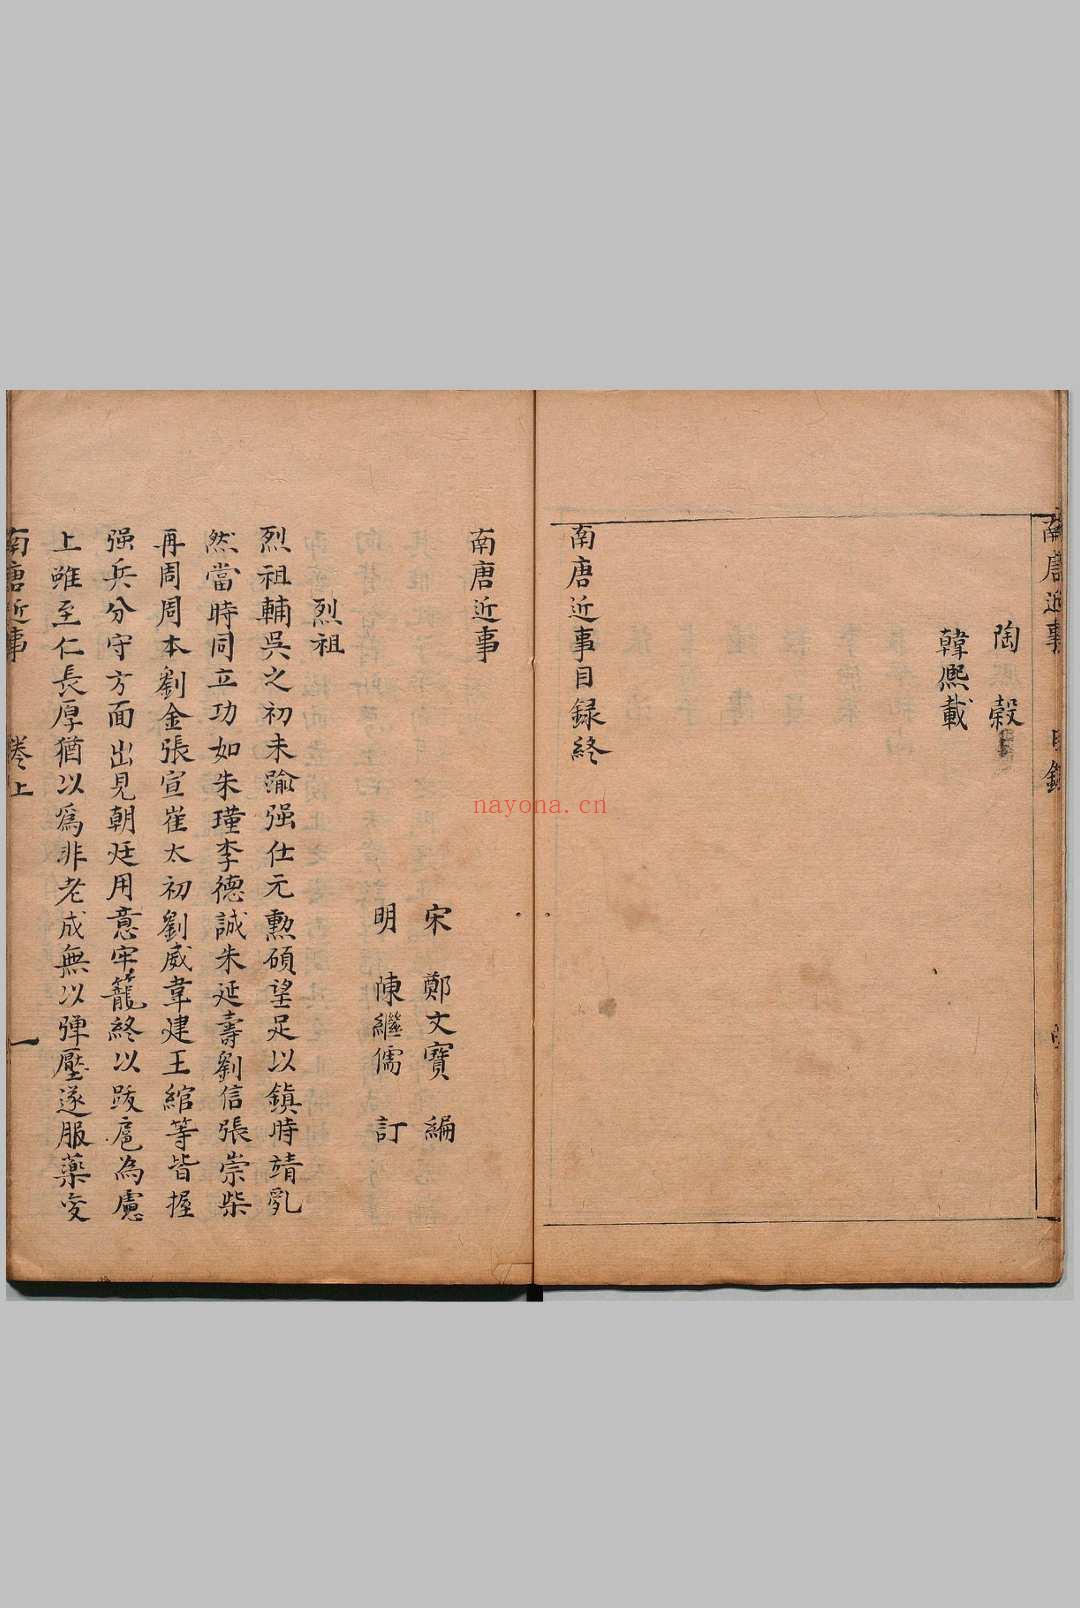 南唐近事
陶穀
韓熙載
南唐近事目録終
南唐近事
宋 鄭文寶 編
明 陳繼儒 訂
烈祖
烈祖輔吳之初未踰强仕元勲碩望足以鎮時靖亂
然當時同立功如朱瑾李德誠朱延壽劉信張崇柴
再周周本劉金張宣崔太初劉威韋建王綰等皆握
强兵分守方面出見朝廷用意牢籠終以跋扈為慮
上雖至仁長厚猶以爲非老成無以弾壓遂服藥变
南唐近事 卷上 一
nayona.cn